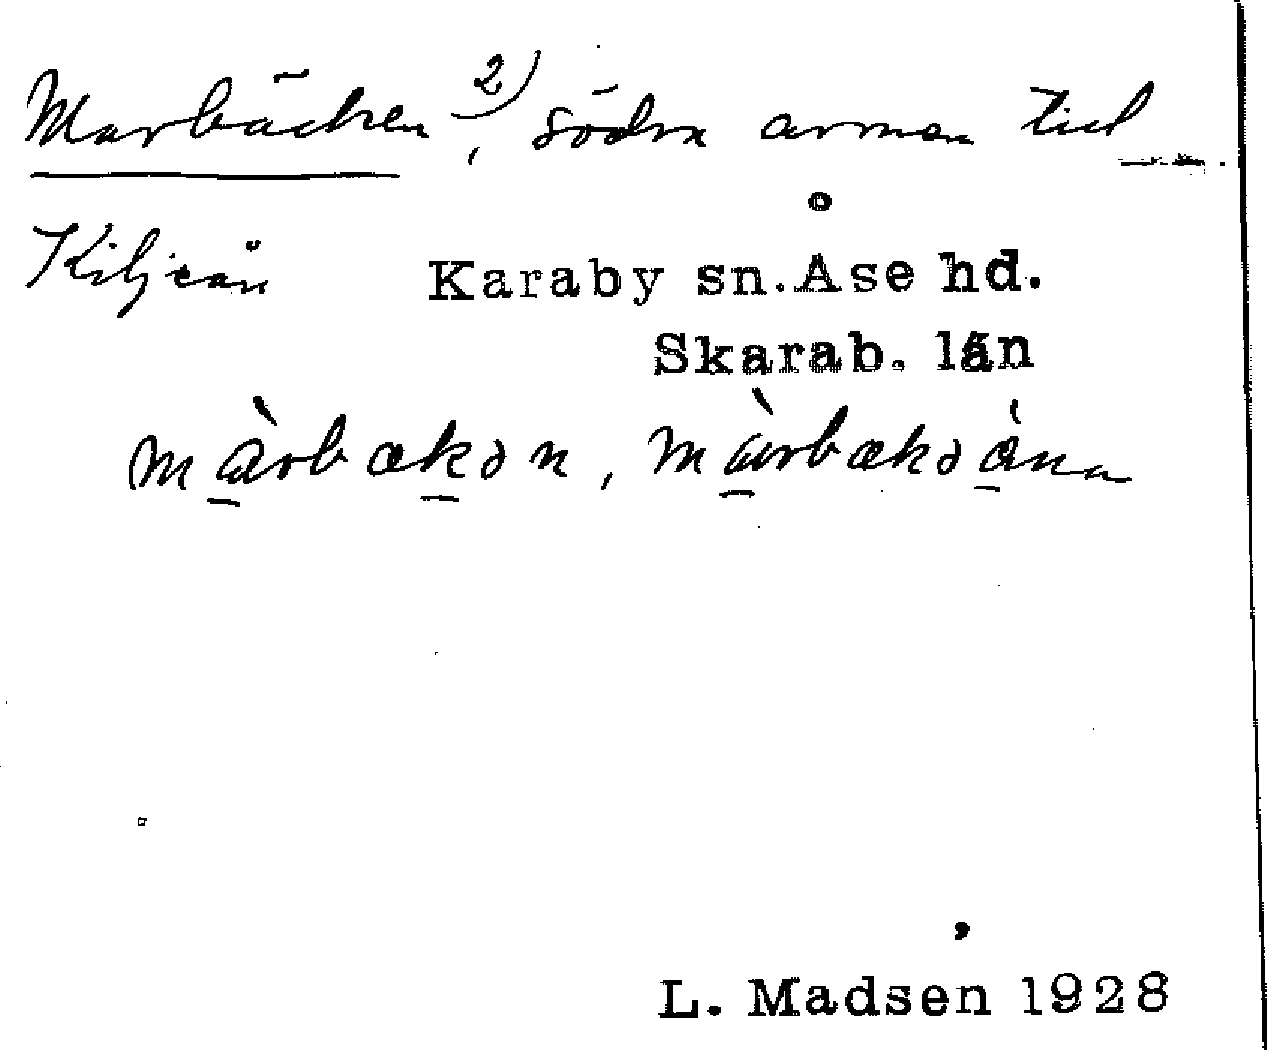 Marbäcken, 2) södra armen till
Kiljeån
Karaby sn. Åse hd.
Skarab. län
màrbækən, màrbækəána
L. Madsen 1928